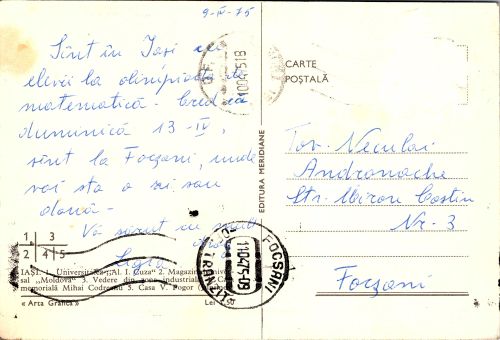 9-IV-75
Sînt în Iași cu
elevii la olimpiada de
matematică. Cred că
duminică 13-IV,
sînt la Focșani, unde
voi sta o zi sau
două.
Vă sărut cu mult
dor
1 3
2 4 5
IAȘI. 1. Universitatea „Al. I. Cuza” 2. Magazinul univer-
sal „Moldova” 3. Vedere din zona industrială
memorială Mihai Codreanu 5. Casa V. Pogor
« Arta Grafică » Lei
EDITURA MERIDIANE
CARTE
POȘTALĂ
Tov. Neculai
Andronache
Str. Miron Costin
Nr. 3
Focșani
FOCȘANI
110475-08